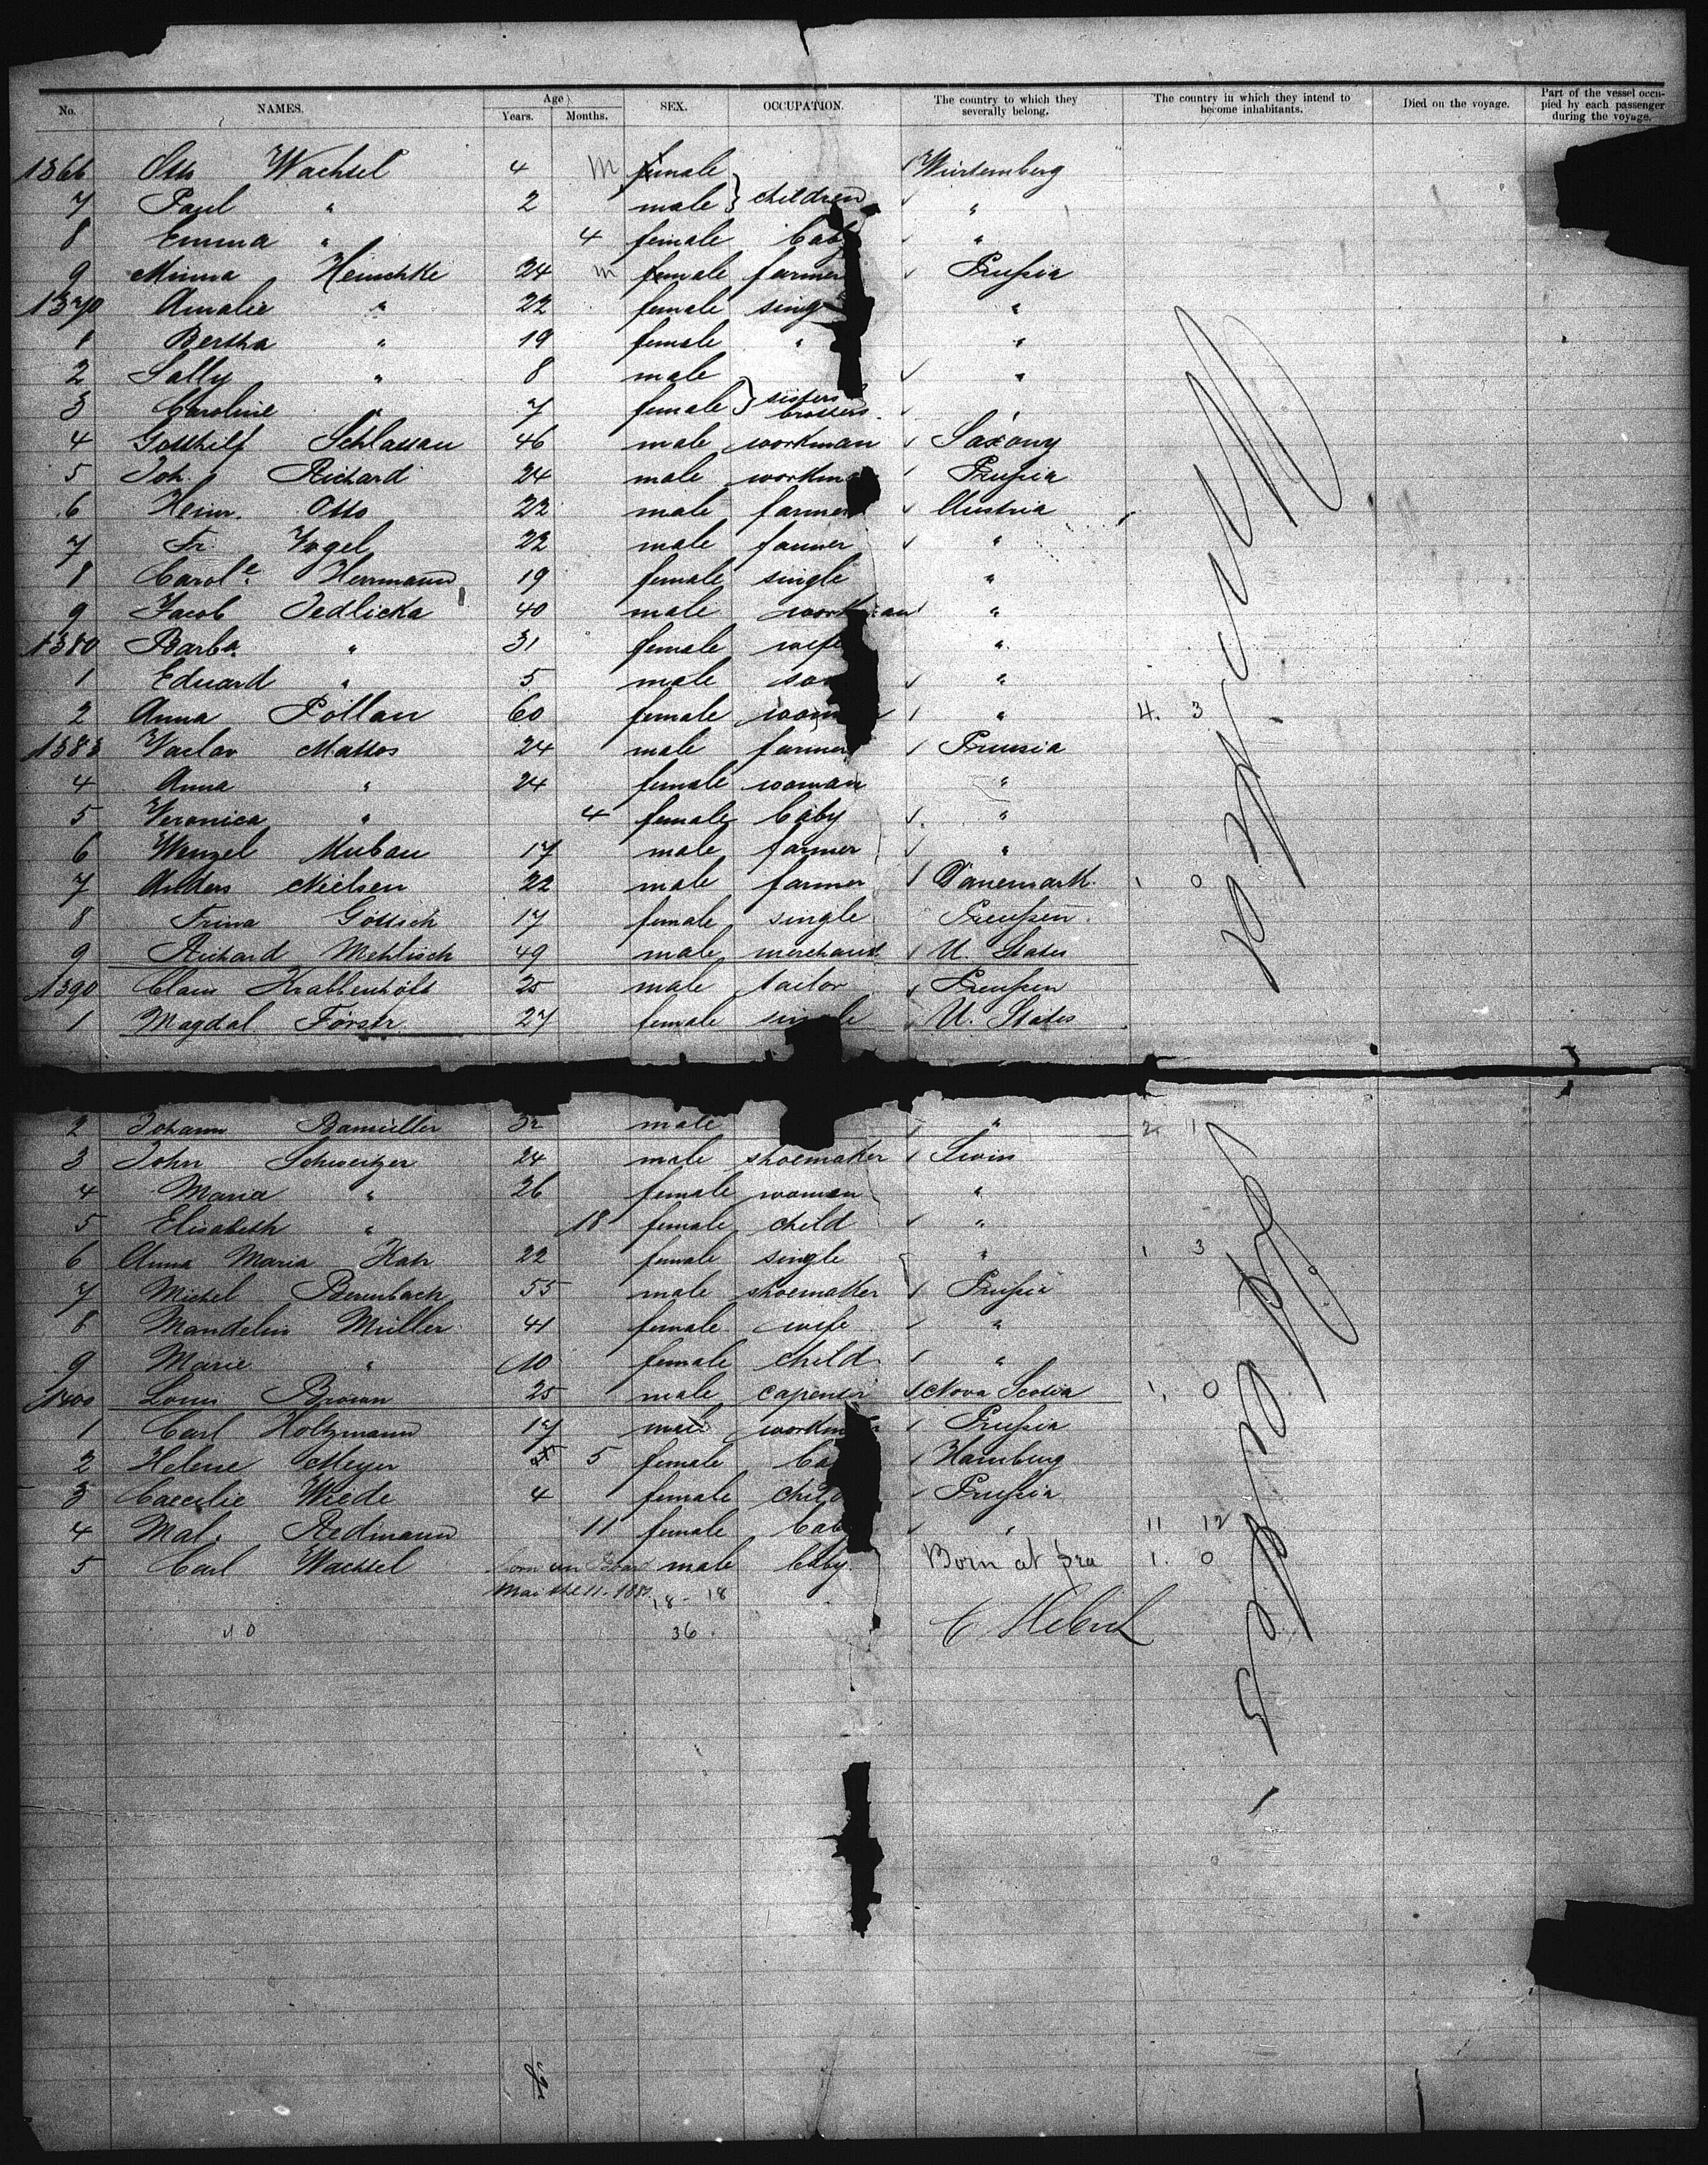 No. NAMES. Age Years. Months. SEX. OCCUPATION. The country to which they severally belong. The country in which they intend to become inhabitants. Died on the voyage. Part of the vessel occupied by each passenger during the voyage.
1366 Otto Wachtel 4 M female Würtemberg
7 Paul " 2 male } children "
8 Emma " 4 female baby "
9 Minna Henschke 24 m female farmer Prussia
1370 Amalie " 22 female sing "
1 Bertha " 19 female " "
2 Sally " 8 male "
3 Caroline " 7 female } sisters brothers "
4 Gotthilf Schlassau 46 male workman Saxony
5 Joh. Richard 24 male workm Prussia
6 Heinr. Otto 22 male farmer Austria
7 Fr. Vogel 22 male farmer "
8 Carole. Herrmann 19 female single "
9 Jacob Jedlicka 40 male workman "
1380 Barba. " 31 female wife "
1 Eduard " 5 male son "
2 Anna Pollan 60 female wom " 4. 3
1383 Vaclav Mattos 24 male farmer Prussia
4 Anna " 24 female woman "
5 Veronica " 4 female baby "
6 Wenzel Mubau 17 male farmer "
7 Anders Nielsen 22 male farmer Danemark. 1 0
8 Trina Göttsch 17 female single Preussen.
9 Richard Mehlisch 49 male merchant U. States
1390 Claus Krabbenhöft 25 male tailor Preussen
1 Magdal. Förstr. 27 female single U. States
2 Johann Bamüller 32 male " 2 1
3 John Schweitzer 24 male shoemaker Swiss
4 Maria " 26 female woman "
5 Elisabeth " 18 female child "
6 Anna Maria Katz 22 female single " 1 3
7 Michel Berenbach 55 male shoemaker Prussia
8 Mandelin Müller 41 female wife "
9 Marie " 10 female child "
1400 Louis Brown 25 male capenter Nova Scotia 1. 0
1 Carl Holtzmann 17 male workman Prussia
2 Helene Meyer 5 female ba Hamburg
3 Caecilie Wiede 4 female child Prussia
4 Mat. Redmann 11 female baby " 11 12
5 Carl Wachtel born on Board male baby. Born at sea 1. 0
Mai the 11. 188 18 - 18
40 36.